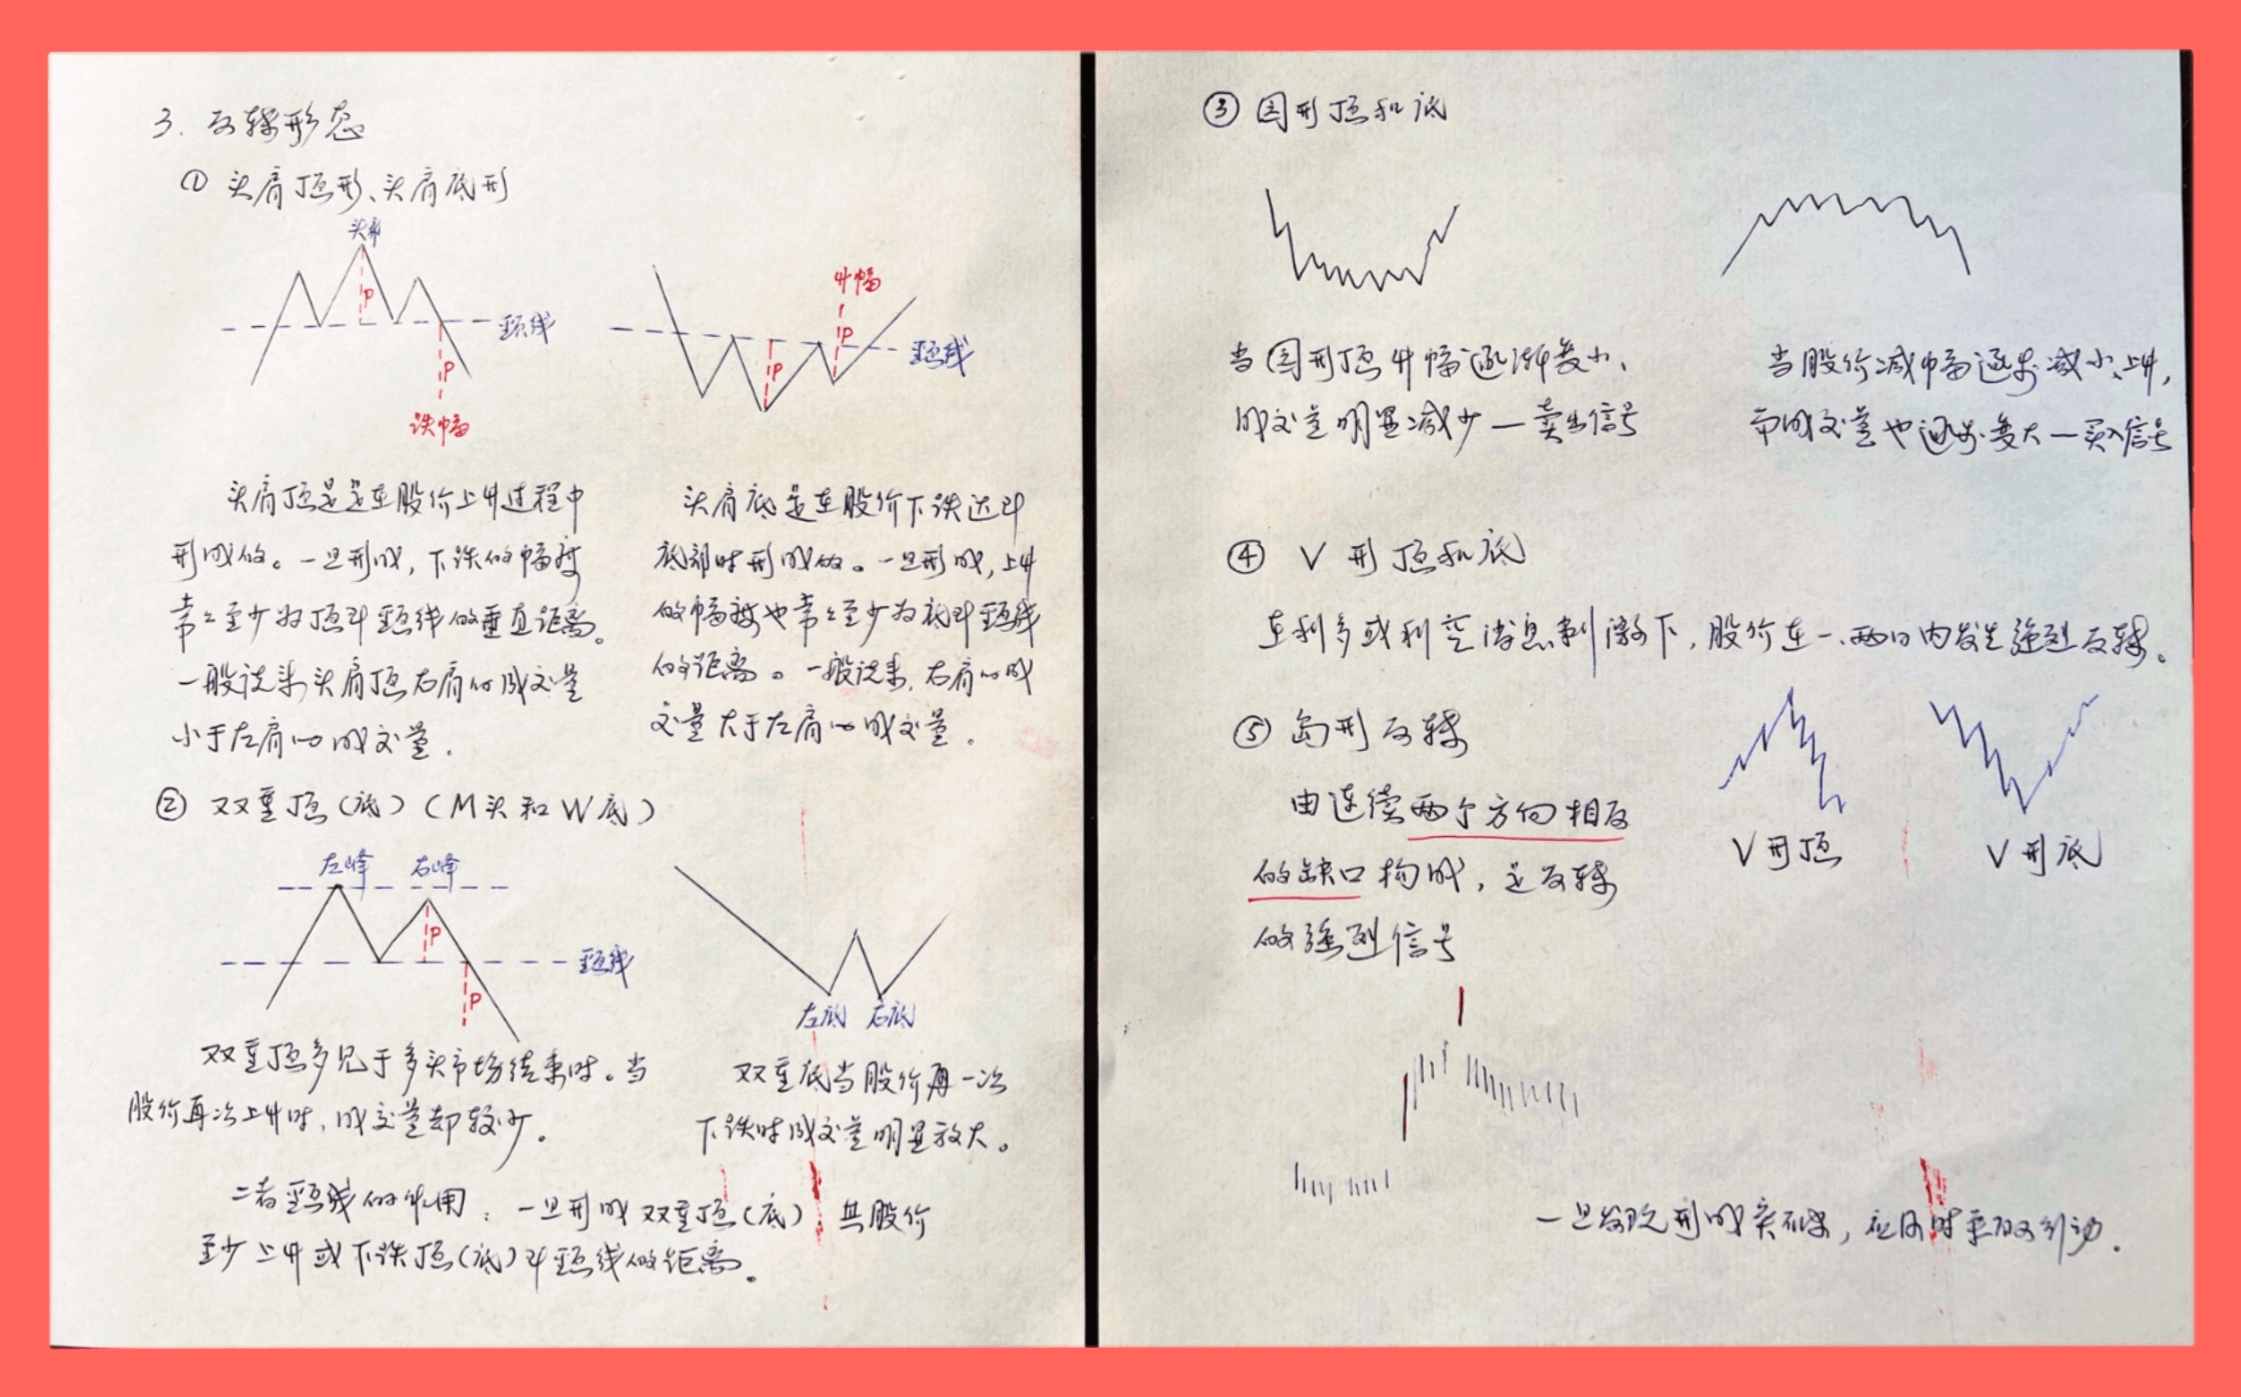 3. 反转形态
① 头肩顶形、头肩底形
头部
P
颈线
P
跌幅
升幅
P
P
颈线
头肩顶是是在股价上升过程中
形成的。一旦形成，下跌的幅度
常々至少为顶到颈线的垂直距离。
一般说来,头肩顶右肩的成交量
小于左肩的成交量.
头肩底是在股价下跌达到
底部时形成的。一旦形成,上升
的幅度也常々至少为底到颈线
的距离。一般说来,右肩的成
交量大于左肩的成交量.
② 双重顶(底)(M头和W底)
左峰 右峰
P
颈线
P
左底 右底
双重顶多见于多头市场结束时。当
股价再次上升时,成交量却较少。
双重底当股价再一次
下跌时成交量明显放大。
二者颈线的作用：一旦形成双重顶(底),其股价
至少上升或下跌顶(底)到颈线的距离。
③ 圆形顶和底
当圆形顶升幅逐渐变小、
成交量明显减少—卖出信号
当股价减幅逐步减小、上升,
而成交量也逐步变大—买入信号
④ V形顶和底
在利多或利空消息刺激下,股价在一、两日内发生强烈反转。
⑤ 岛形反转
由连续两个方向相反
的缺口构成,是反转
的强烈信号
V形顶
V形底
一旦发现形成类似岛,应及时采取行动.